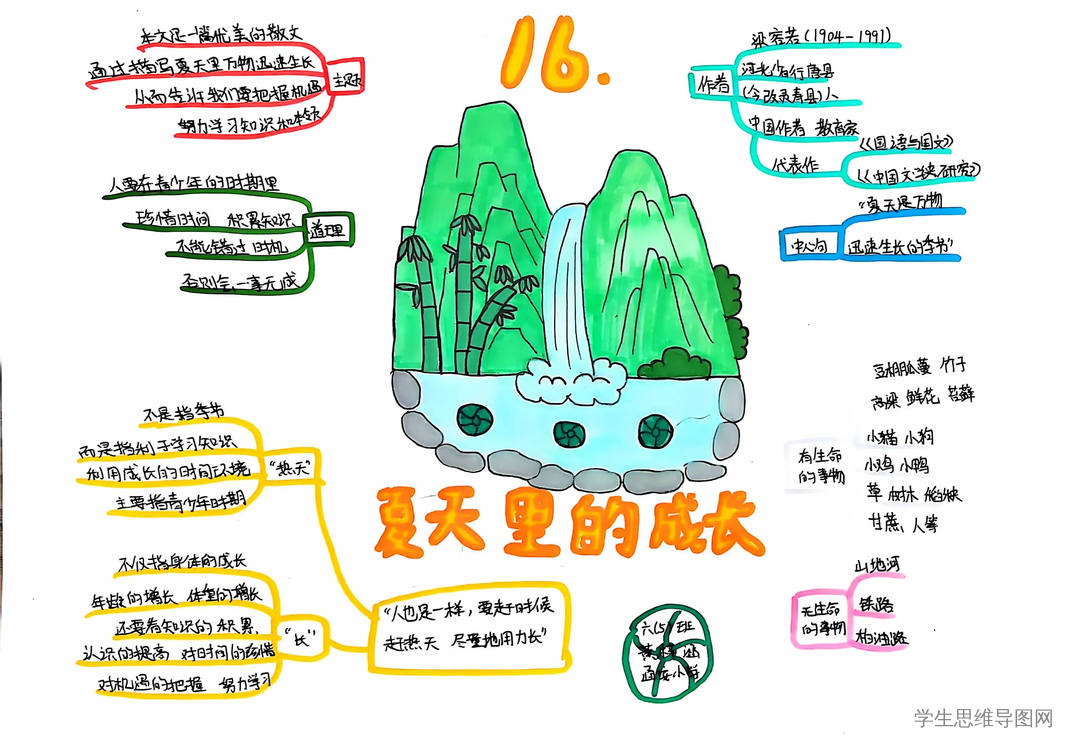 16.
夏天里的成长
本文是一篇优美的散文
通过描写夏天里万物迅速生长
从而告诉我们要把握机遇
努力学习知识和本领
主题
人要在青少年的时期里
珍惜时间 积累知识
不能错过时机
否则会一事无成
道理
作者
梁容若(1904-1991)
河北省行唐县
(今改灵寿县)人
中国作者 教育家
代表作
《国语与国文》
《中国文学史研究》
中心句
"夏天是万物
迅速生长的季节"
有生命
的事物
豆棚瓜蔓 竹子
高粱 鲜花 苔藓
小猫 小狗
小鸡 小鸭
草 树木
甘蔗、人等
无生命
的事物
山地河
铁路
柏油路
不是指季节
而是指利于学习知识
利用成长的时间环境
主要指青少年时期
"热天"
不仅指身体的成长
年龄的增长 体重的增长
还要有知识的积累,
认识的提高 对时间的珍惜
对机遇的把握 努力学习
"长"
"人也是一样,要赶时候
赶热天 尽量地用力长"
六(5)班
学生思维导图网